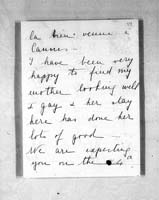 la bien venue à
Cannes —
I have been very
happy to find my
mother looking well
& gay & her stay
here has done her
lots of good —
We are expecting
you on the 24th